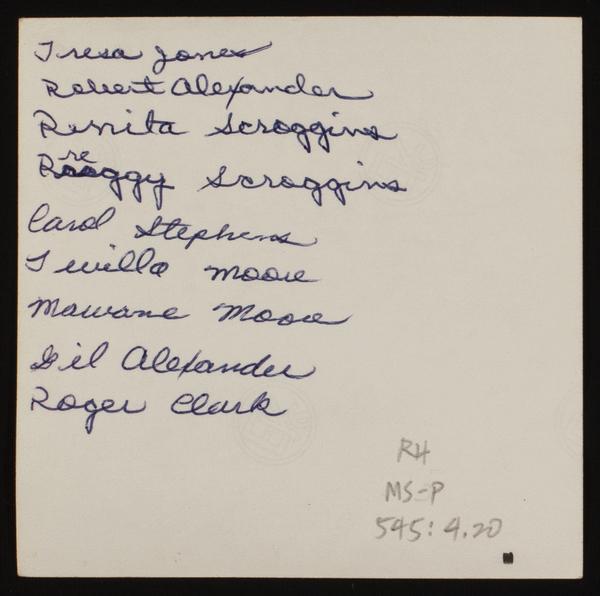 Tresa Jones
Robert Alexander
Renita Scroggins
Reggy Scroggins
Carol Stephens
Twilla Moore
Mawane Moore
Gil Alexander
Roger Clark
RH
MS-P
545: 4.20